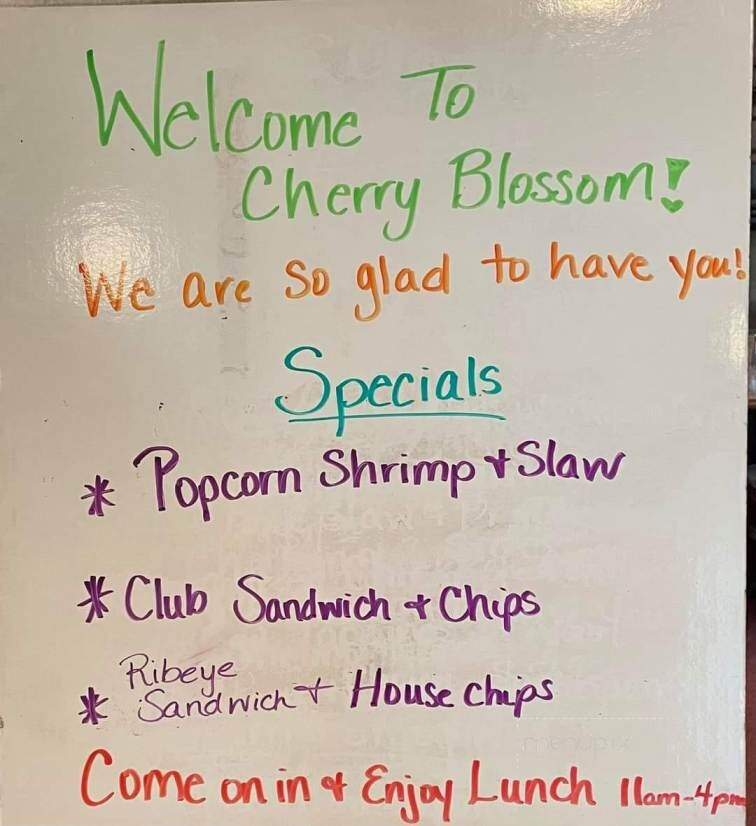 Welcome To
Cherry Blossom!
We are so glad to have you!
Specials
* Popcorn Shrimp + Slaw
* Club Sandwich + Chips
* Ribeye
Sandwich + House Chips
Come on in & Enjoy Lunch 11am-4pm